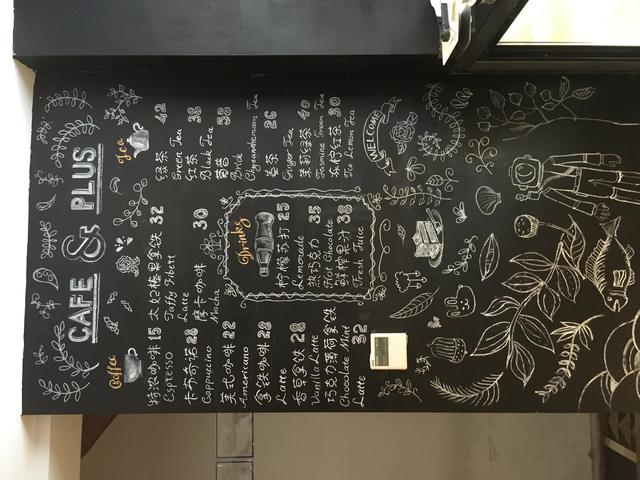 CAFE & PLUS
Coffee
特浓咖啡 15
Espresso
卡布奇诺 28
Cappuccino
美式咖啡 22
Americano
拿铁咖啡 28
Latte
香草拿铁 28
Vanilla Latte
巧克力薄荷拿铁
Chocolate Mint
Latte 32
太妃榛果拿铁 32
Taffy Filbert
Latte
摩卡咖啡 30
Mocha
Drinks
柠檬苏打 25
Lemonade
热巧克力 35
Hot Chocolate
鲜榨果汁 38
Fresh Juice
Tea
绿茶 42
Green Tea
红茶 38
Black Tea
菊普 58
Brick
Tea
姜茶 26
Ginger Tea
茉莉绿茶 40
Jasmine Green Tea
冻柠红茶 30
Ice Lemon Tea
WELCOME